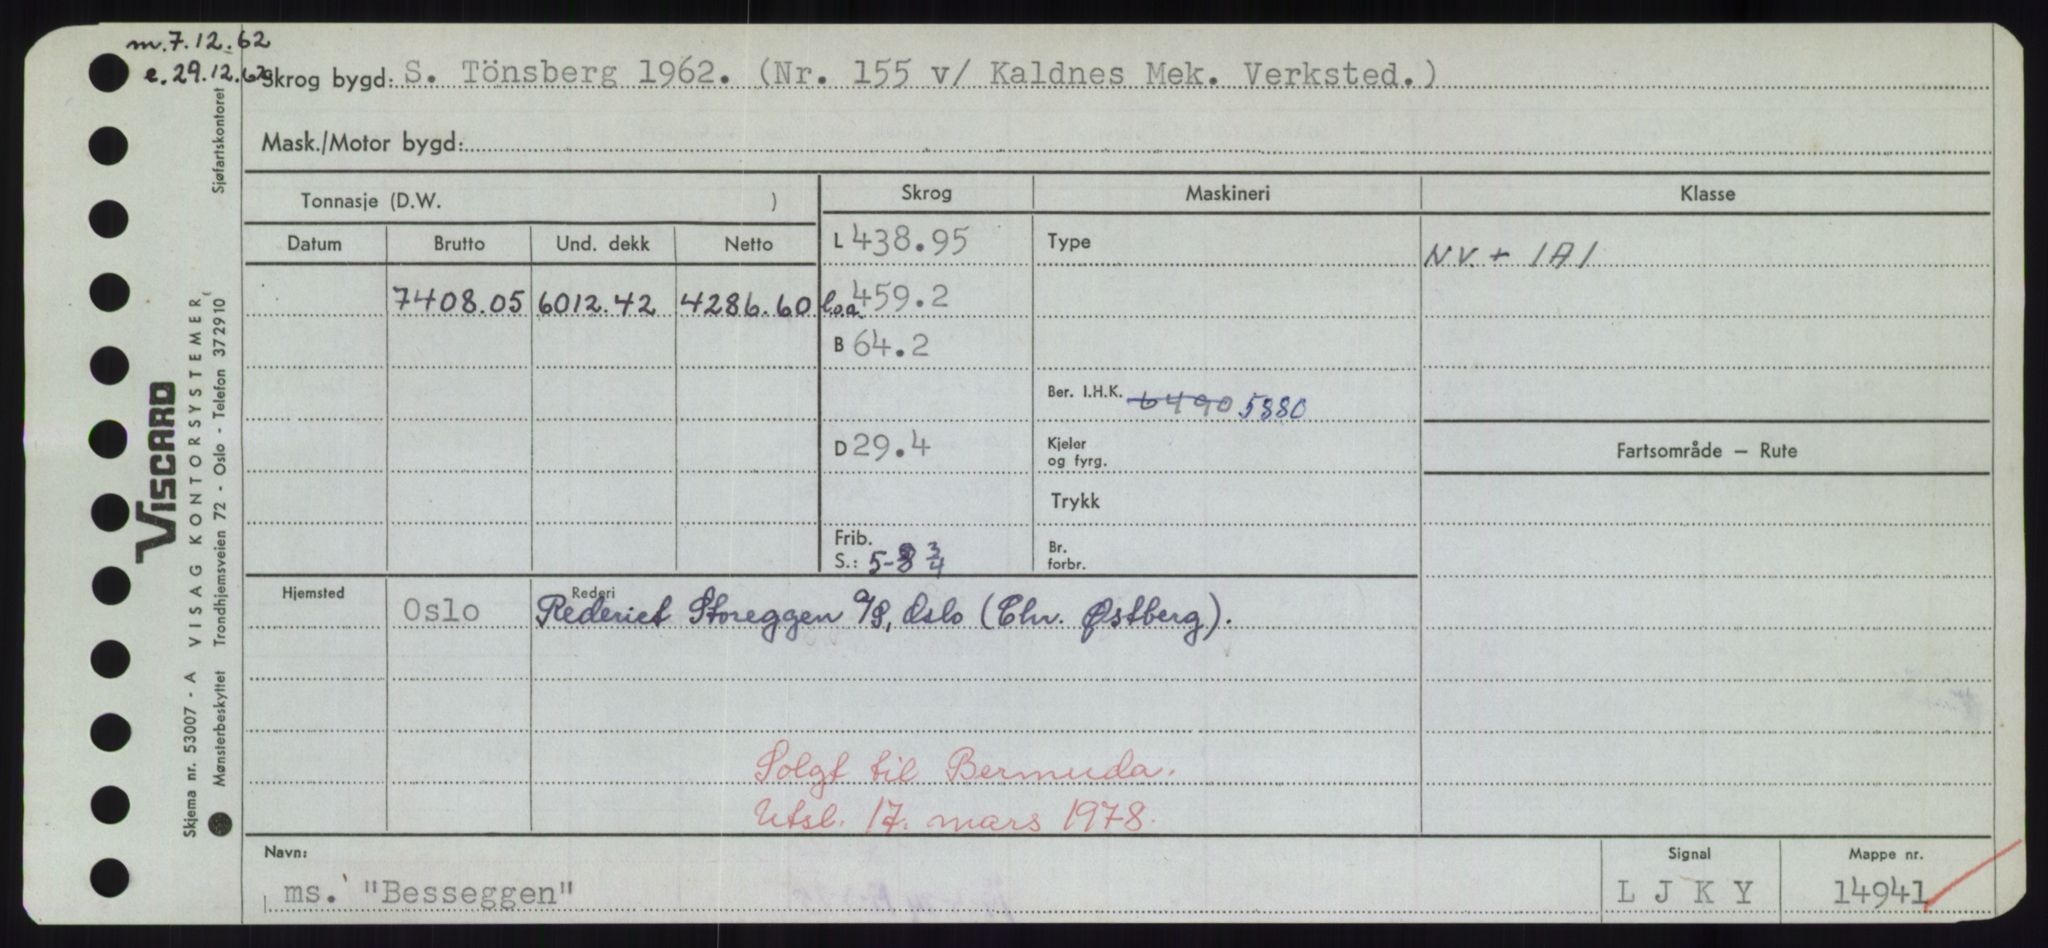 m.7.12.62
e.29.12.62
Skrog bygd: S. Tönsberg 1962. (Nr. 155 v/ Kaldnes Mek. Verksted.)
Mask./Motor bygd:
Tonnasje (D.W. )
Skrog
Maskineri
Klasse
Datum
Brutto
Und. dekk
Netto
L 438.95
Type
NV. + 1A1
7408.05 6012.42 4286.60
l.o.a. 459.2
B 64.2
Ber. I.H.K. 6490 5880
D 29.4
Kjeler
og fyrg.
Fartsområde — Rute
Trykk
Frib.
S.: 5-8 3/4
Br.
forbr.
Hjemsted
Oslo
Rederi
Rederiet Storeggen A/S, Oslo (Chr. Østberg).
Solgt til Bermuda.
Utsl. 17. mars 1978.
Navn:
ms. "Besseggen"
Signal
L J K Y
Mappe nr.
14941
VISCARD
VISAG KONTORSYSTEMER
Skjema nr. 53007 - A
Mønsterbeskyttet Trondhjemsveien 72 - Oslo - Telefon 372910
Sjøfartskontoret